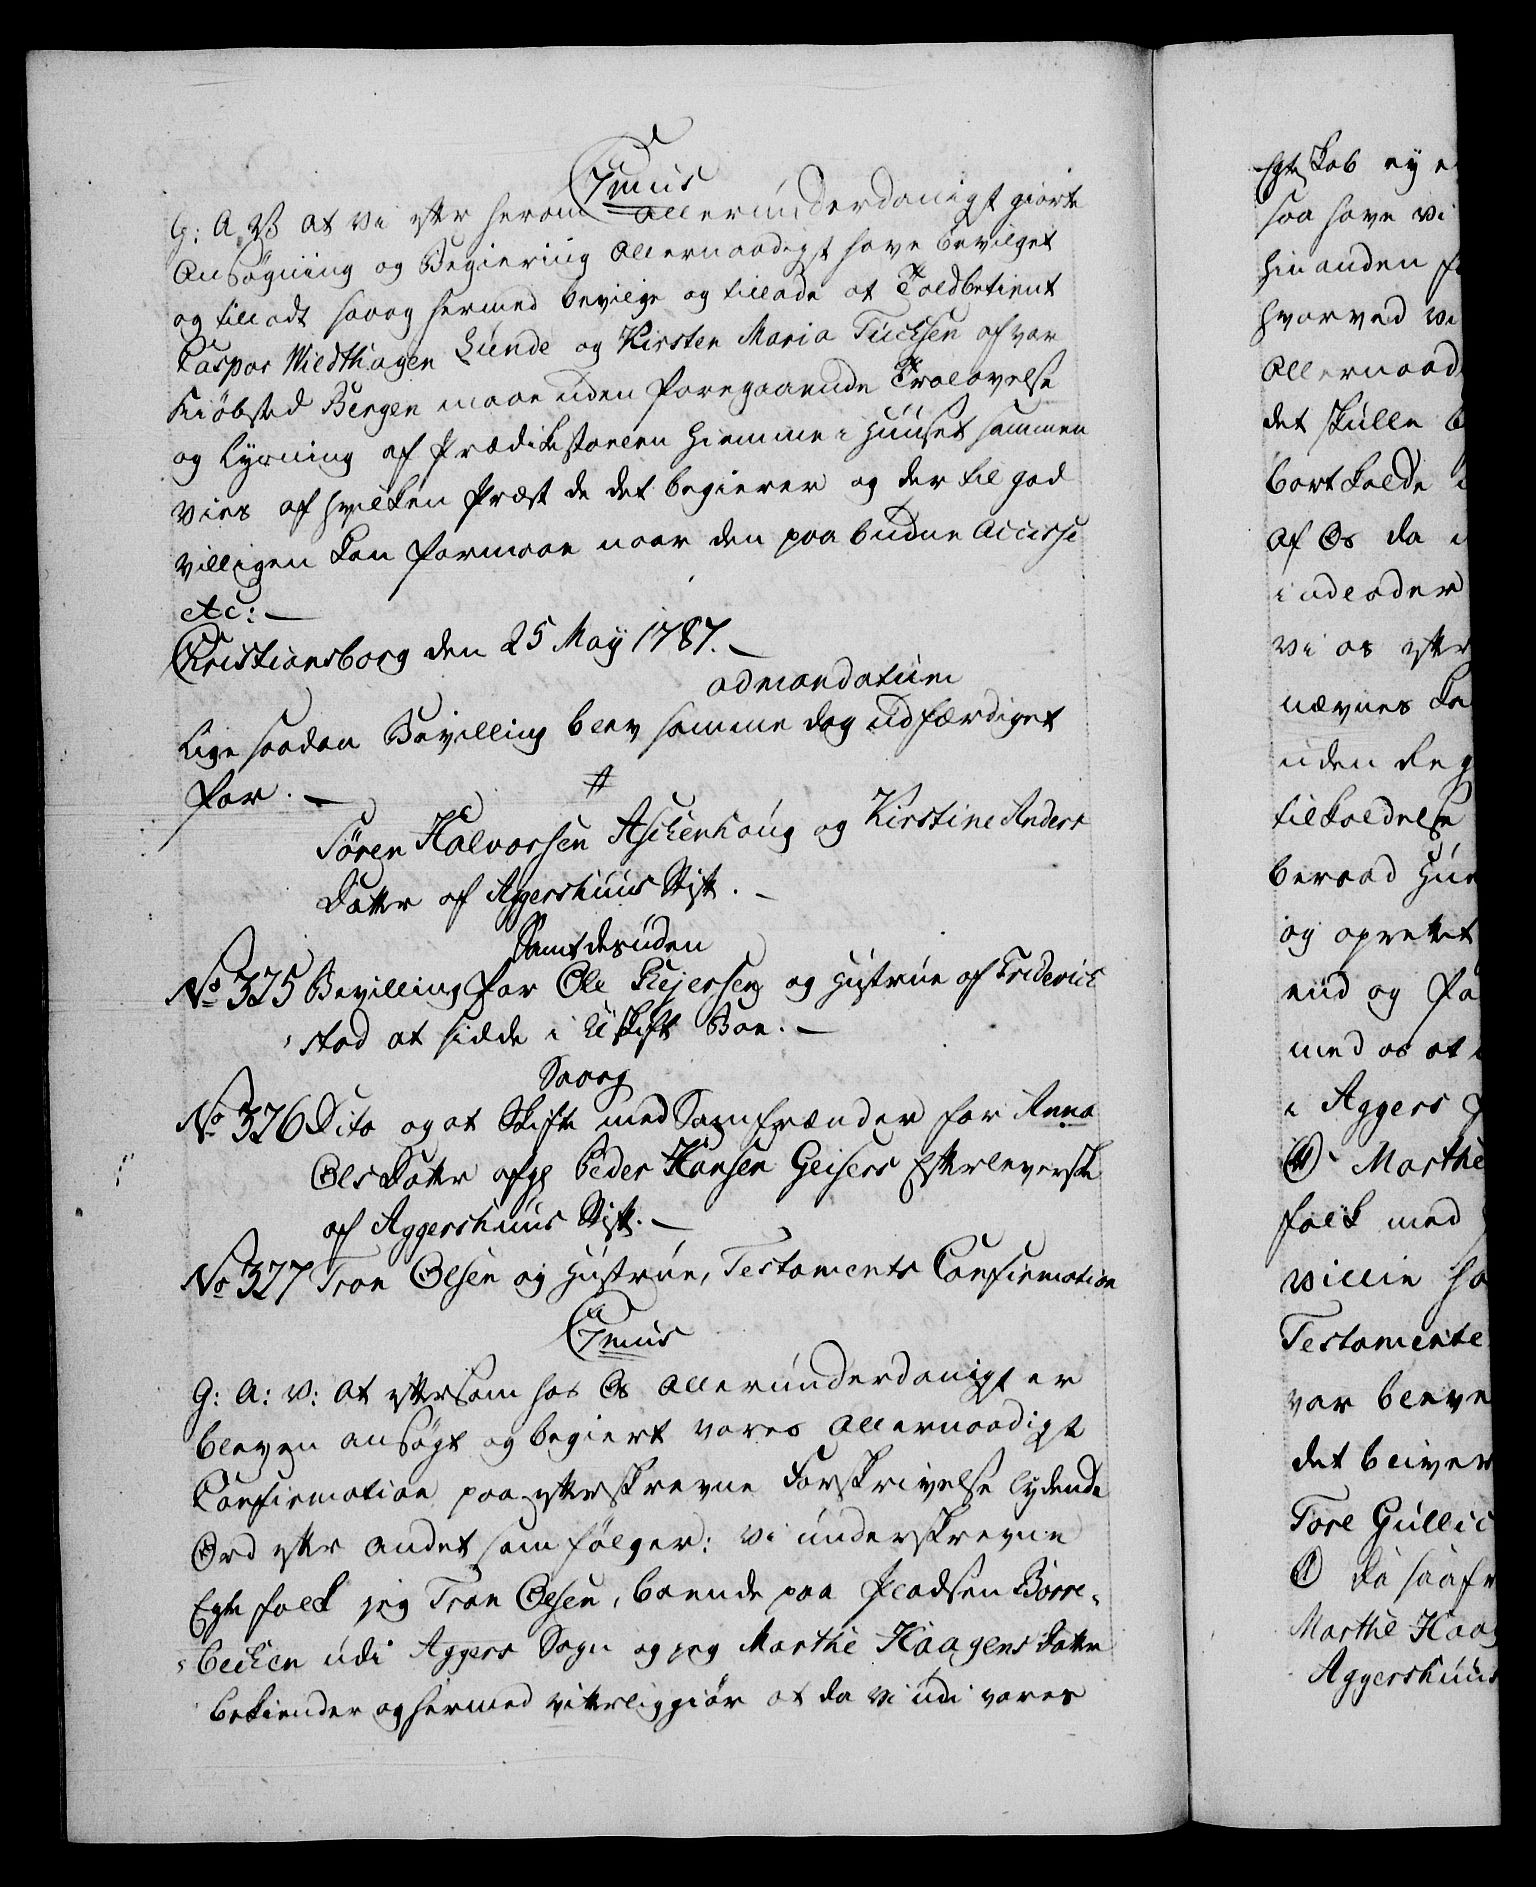 C7mus
G: A. V. at vi efter herom allerunderdanigst giorte
Ansøgning og Begiering allernaadigst have bevilget
og tilladt saaog hermed bevilge og tillade at Toldbetient
Caspar Wildthagen Lunde og Kirsten Maria Tuchsen af vor
Kiøbsted Bergen maae uden foregaaende Trolovelse
og Lysning af Prædikestoelen hiemme i Huuset sammen
vies af hvilken Præst de det begierer og der til god
villigen kan formaae naar den paabudne Accisse
etc: —
Christiansborg den 25 Maÿ 1787. —
admandatum
Lige saadan Bevilling blev samme dag udfærdiget
for. —
Søren Halvorsen Aschenhoug og Kirstine Anders
Datter af Aggershuus Stift. —
Samt desuden
No 325 Bevilling for Ole Hejersen og Hustrue af Friderich
stad at sidde i Uskift Boe. —
Saaog
No 326 Dito og at Skifte med Samfrænder for Anna
Olsdatter afg: Peder Hansen Geisers Efterleverske
af Aggershuus Stift. —
No 327 Tron Olsen og Hustrue, Testaments Confirmation
C7mus
G: A: V: at eftersom hos Os allerunderdanigst er
bleven ansøgt og begiert vores allernaadigste
Confirmation paa efterskrevne Forskrivelse lydende
Ord efter andet som følger: Vi underskrevne
Egtefolk jeg Tron Olsen, boende paa Pladsen Borre-
bechen udi Aggers Sogn og jeg Marthe Haagensdatter
bekiender og hermed vitterliggiør at da vi udi vores
Egteskab ey e
saa have vi
hinanden f
hvorved vi
allernaad
det skulle b
bortkalde
af Os da
indeader
vi os efter
nævnes ka
uden Reg
tilkaldelse
beraad Hu
og oprettet
end og fo
med os at
i Aggers
Marthe
folk med
villie ha
Testamente
vor bleve
det bliver
Tore Gullic
da saafr
Marthe Haag
Aggershuus